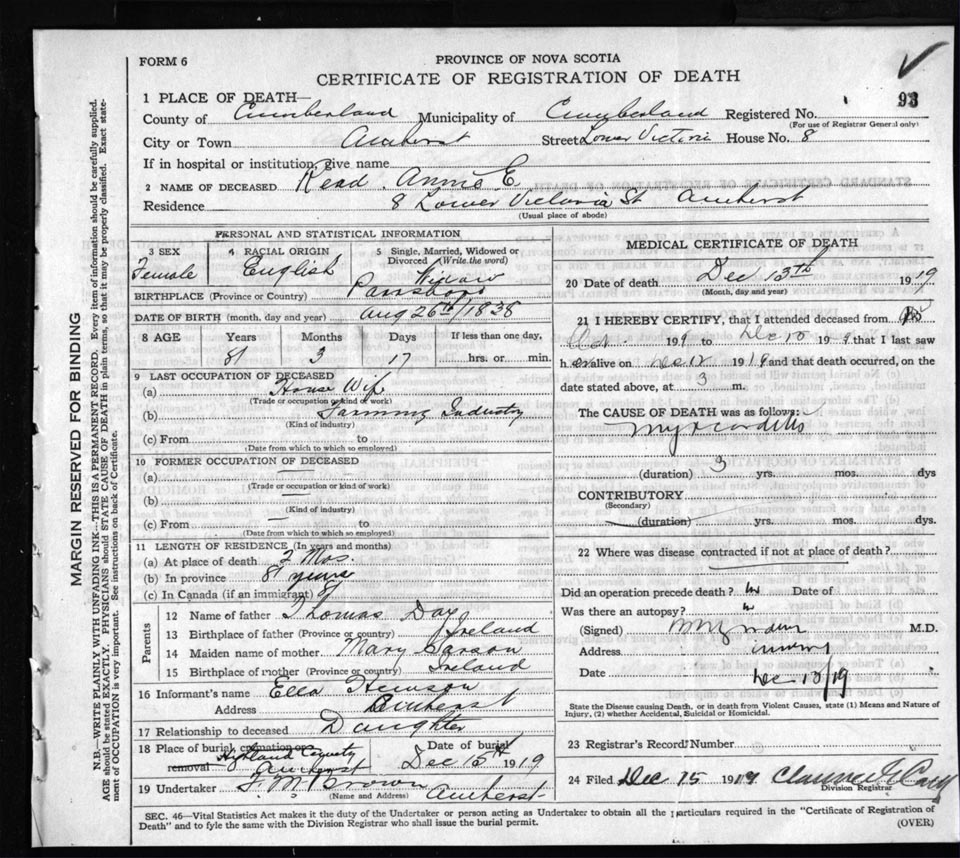 FORM 6
PROVINCE OF NOVA SCOTIA
CERTIFICATE OF REGISTRATION OF DEATH
93
1 PLACE OF DEATH—
County of Cumberland Municipality of Cumberland Registered No.
(For use of Registrar General only)
City or Town Amherst Street Lower Victoria House No. 8
If in hospital or institution, give name
2 NAME OF DECEASED Read. Annie E.
Residence 8 Lower Victoria St Amherst
(Usual place of abode)
PERSONAL AND STATISTICAL INFORMATION
3 SEX Female
4 RACIAL ORIGIN English
5 Single, Married, Widowed or Divorced (Write the word) Widow
BIRTHPLACE (Province or Country) Parrsboro
DATE OF BIRTH (month, day and year) Aug 26th/1838
8 AGE Years Months Days If less than one day,
81 3 17 hrs. or min.
9 LAST OCCUPATION OF DECEASED
(a) House Wife
(Trade or occupation or kind of work)
(b) Farming Industry
(Kind of industry)
(c) From to
(Date from which to which so employed)
10 FORMER OCCUPATION OF DECEASED
(a)
(Trade or occupation or kind of work)
(b)
(Kind of industry)
(c) From to
(Date from which to which so employed)
11 LENGTH OF RESIDENCE (In years and months)
(a) At place of death 2 Mos.
(b) In province 81 years
(c) In Canada (if an immigrant)
Parents
12 Name of father Thomas Day
13 Birthplace of father (Province or country) Ireland
14 Maiden name of mother Mary
15 Birthplace of mother (Province or country) Ireland
16 Informant's name Ella
Address Amherst
17 Relationship to deceased Daughter
18 Place of burial, cremation or removal Highland Cemetery Amherst
Date of burial Dec 15th 1919
19 Undertaker Brown Amherst
(Name and Address)
MEDICAL CERTIFICATE OF DEATH
20 Date of death Dec 13th 1919
(Month, day and year)
21 I HEREBY CERTIFY, that I attended deceased from
191 9 to Dec 10 191 9 that I last saw
h er alive on Dec 12 1919 and that death occurred, on the
date stated above, at 3 m.
The CAUSE OF DEATH was as follows:
Myocarditis
(duration) 3 yrs. mos. dys
CONTRIBUTORY
(Secondary)
(duration) yrs. mos. dys.
22 Where was disease contracted if not at place of death?
Did an operation precede death? no Date of
Was there an autopsy? no
(Signed) M.D.
Address
Date Dec 13/19
State the Disease causing Death, or in death from Violent Causes, state (1) Means and Nature of Injury, (2) whether Accidental, Suicidal or Homicidal.
23 Registrar's Record Number
24 Filed Dec 15 1919 Clarence
Division Registrar
SEC. 46—Vital Statistics Act makes it the duty of the Undertaker or person acting as Undertaker to obtain all the particulars required in the "Certificate of Registration of
Death" and to fyle the same with the Division Registrar who shall issue the burial permit.
(OVER)
MARGIN RESERVED FOR BINDING
N.B.—WRITE PLAINLY WITH UNFADING INK—THIS IS A PERMANENT RECORD. Every item of information should be carefully supplied.
AGE should be stated EXACTLY. PHYSICIANS should STATE CAUSE OF DEATH in plain terms, so that it may be properly classified. Exact statement of OCCUPATION is very important. See instructions on back of Certificate.